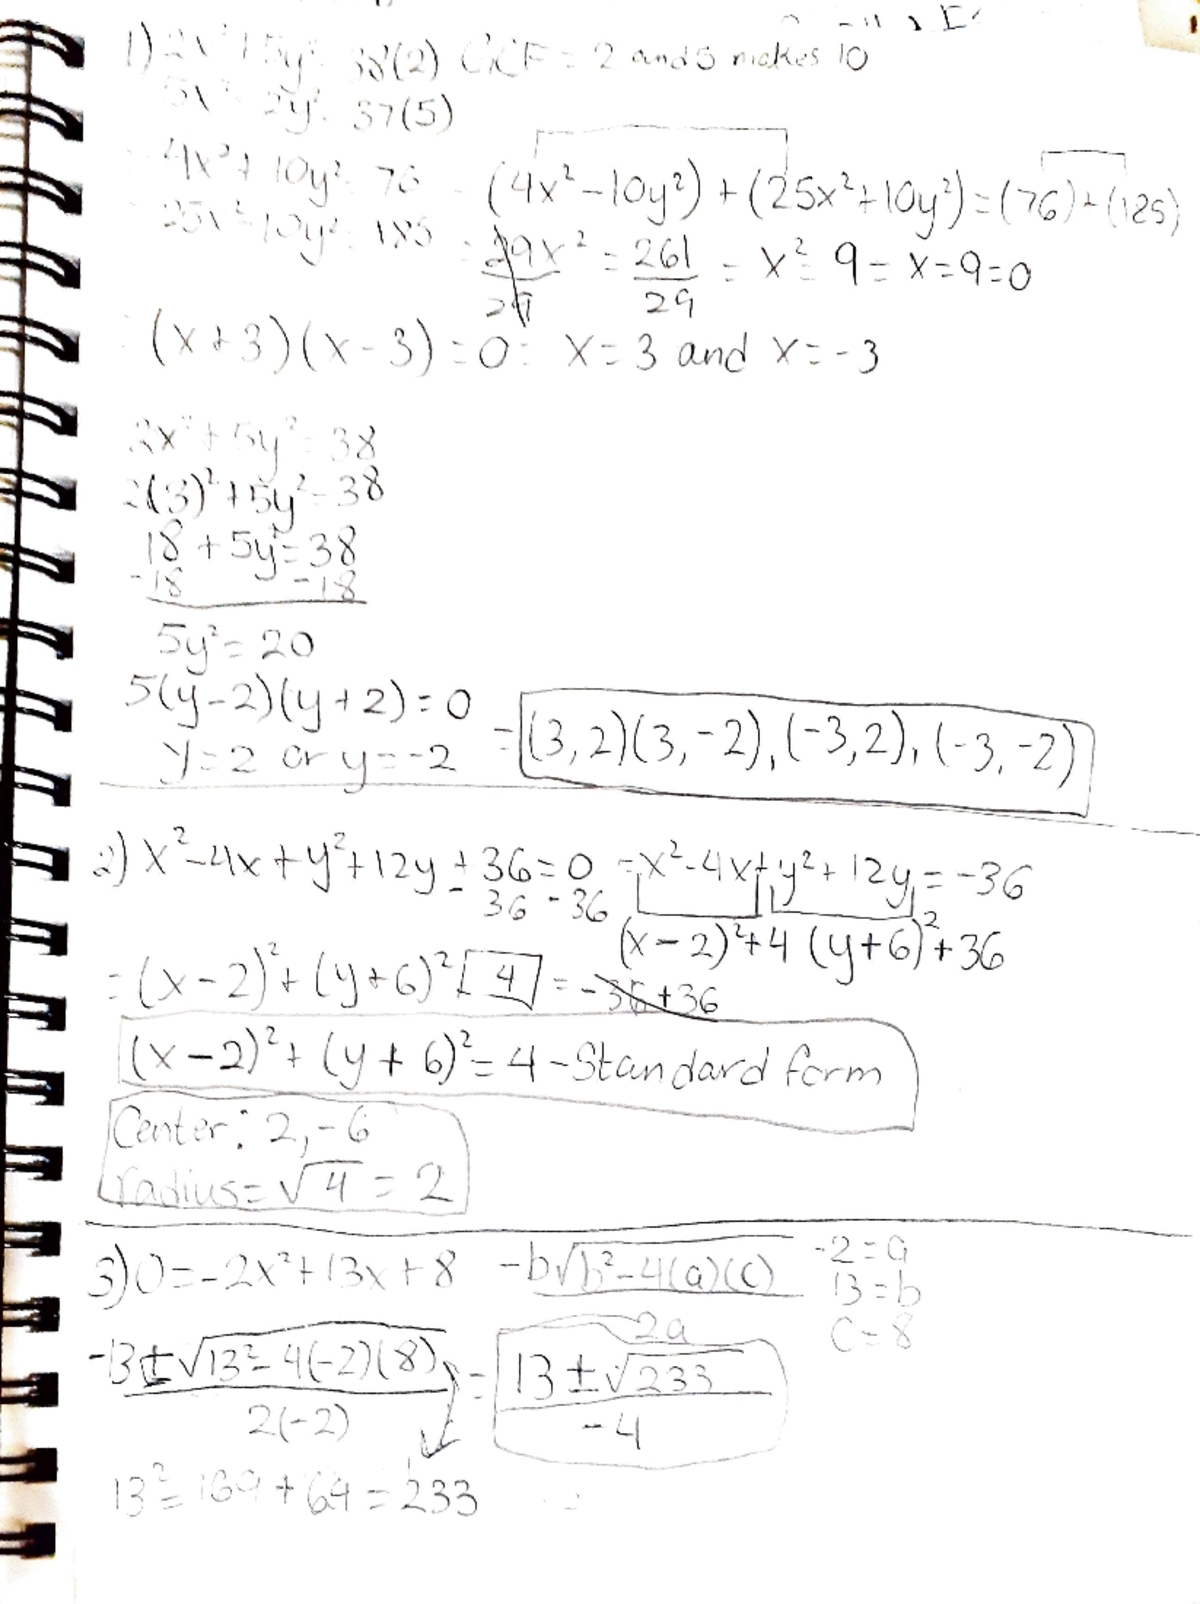 1) 2x² + 5y² = 38(2) GCF = 2 and 5 makes 10
5x² - 2y² = 37(5)
4x² + 10y² = 76 - (4x² - 10y²) + (25x² + 10y²) = (76) + (125)
25x² - 10y² = 185 = 29x²/29 = 261/29 = x² = 9 = x = 9 = 0
(x+3)(x-3) = 0 = x = 3 and x = -3
2x² + 5y² = 38
2(3)² + 5y² = 38
18 + 5y² = 38
-18 -18
5y² = 20
5(y-2)(y+2) = 0
y = 2 or y = -2 = (3, 2)(3, -2), (-3, 2), (-3, -2)
2) x² - 4x + y² + 12y + 36 = 0 = x² - 4x + y² + 12y = -36
- 36 - 36
(x - 2)² + 4 (y + 6)² + 36
= (x - 2)² + (y + 6)² [4] = -36 + 36
(x - 2)² + (y + 6)² = 4 - Standard form
Center: 2, -6
radius = √4 = 2
3) 0 = -2x² + 13x + 8 -b√b² - 4(a)(c) -2 = a
2a 13 = b
c = 8
-13 ± √13² - 4(-2)(8) = 13 ± √233
2(-2) -4
13² = 169 + 64 = 233